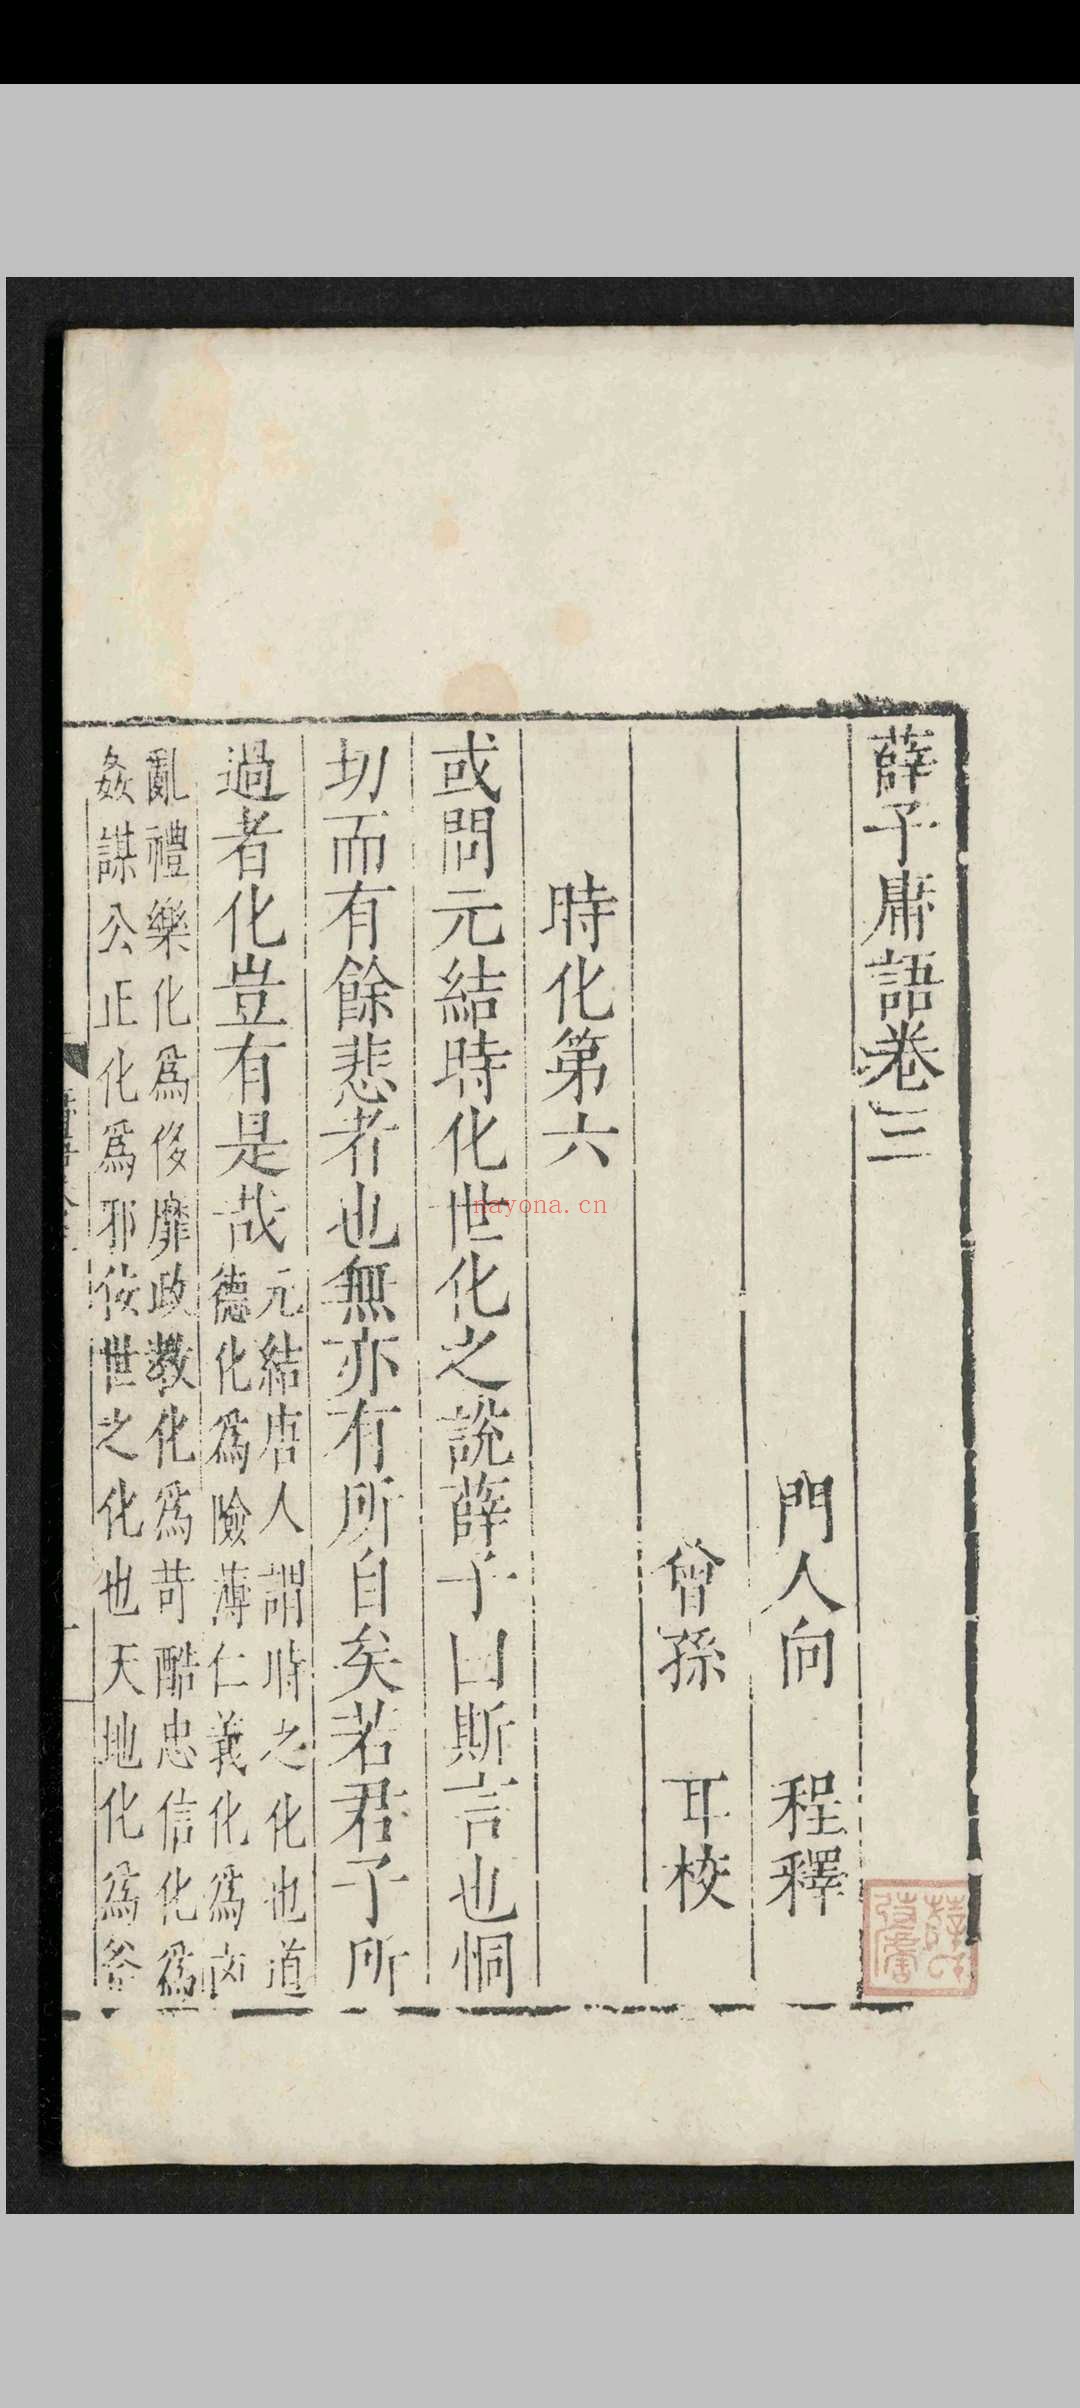 薛子庸語卷三
門人向　程釋
曾孫　耳校
時化第六
或問元結時化世化之說薛子曰斯言也恫
切而有餘悲者也無亦有所自矣若君子所
過者化豈有是哉
元結唐人謂時之化也道
德化爲險薄仁義化爲㐫
亂禮樂化爲侈靡政教化爲苛酷忠信化爲
姦謀公正化爲邪佞世之化也天地化爲斧
nayona.cn